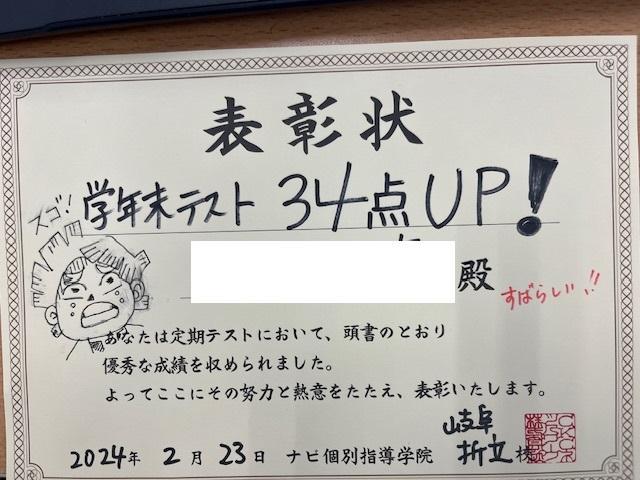 表彰状
学年末テスト 34点UP!
スゴ!
殿
すばらしい!!
あなたは定期テストにおいて、頭書のとおり
優秀な成績を収められました。
よってここにその努力と熱意をたたえ、表彰いたします。
2024年 2月 23日 ナビ個別指導学院 岐阜折立校